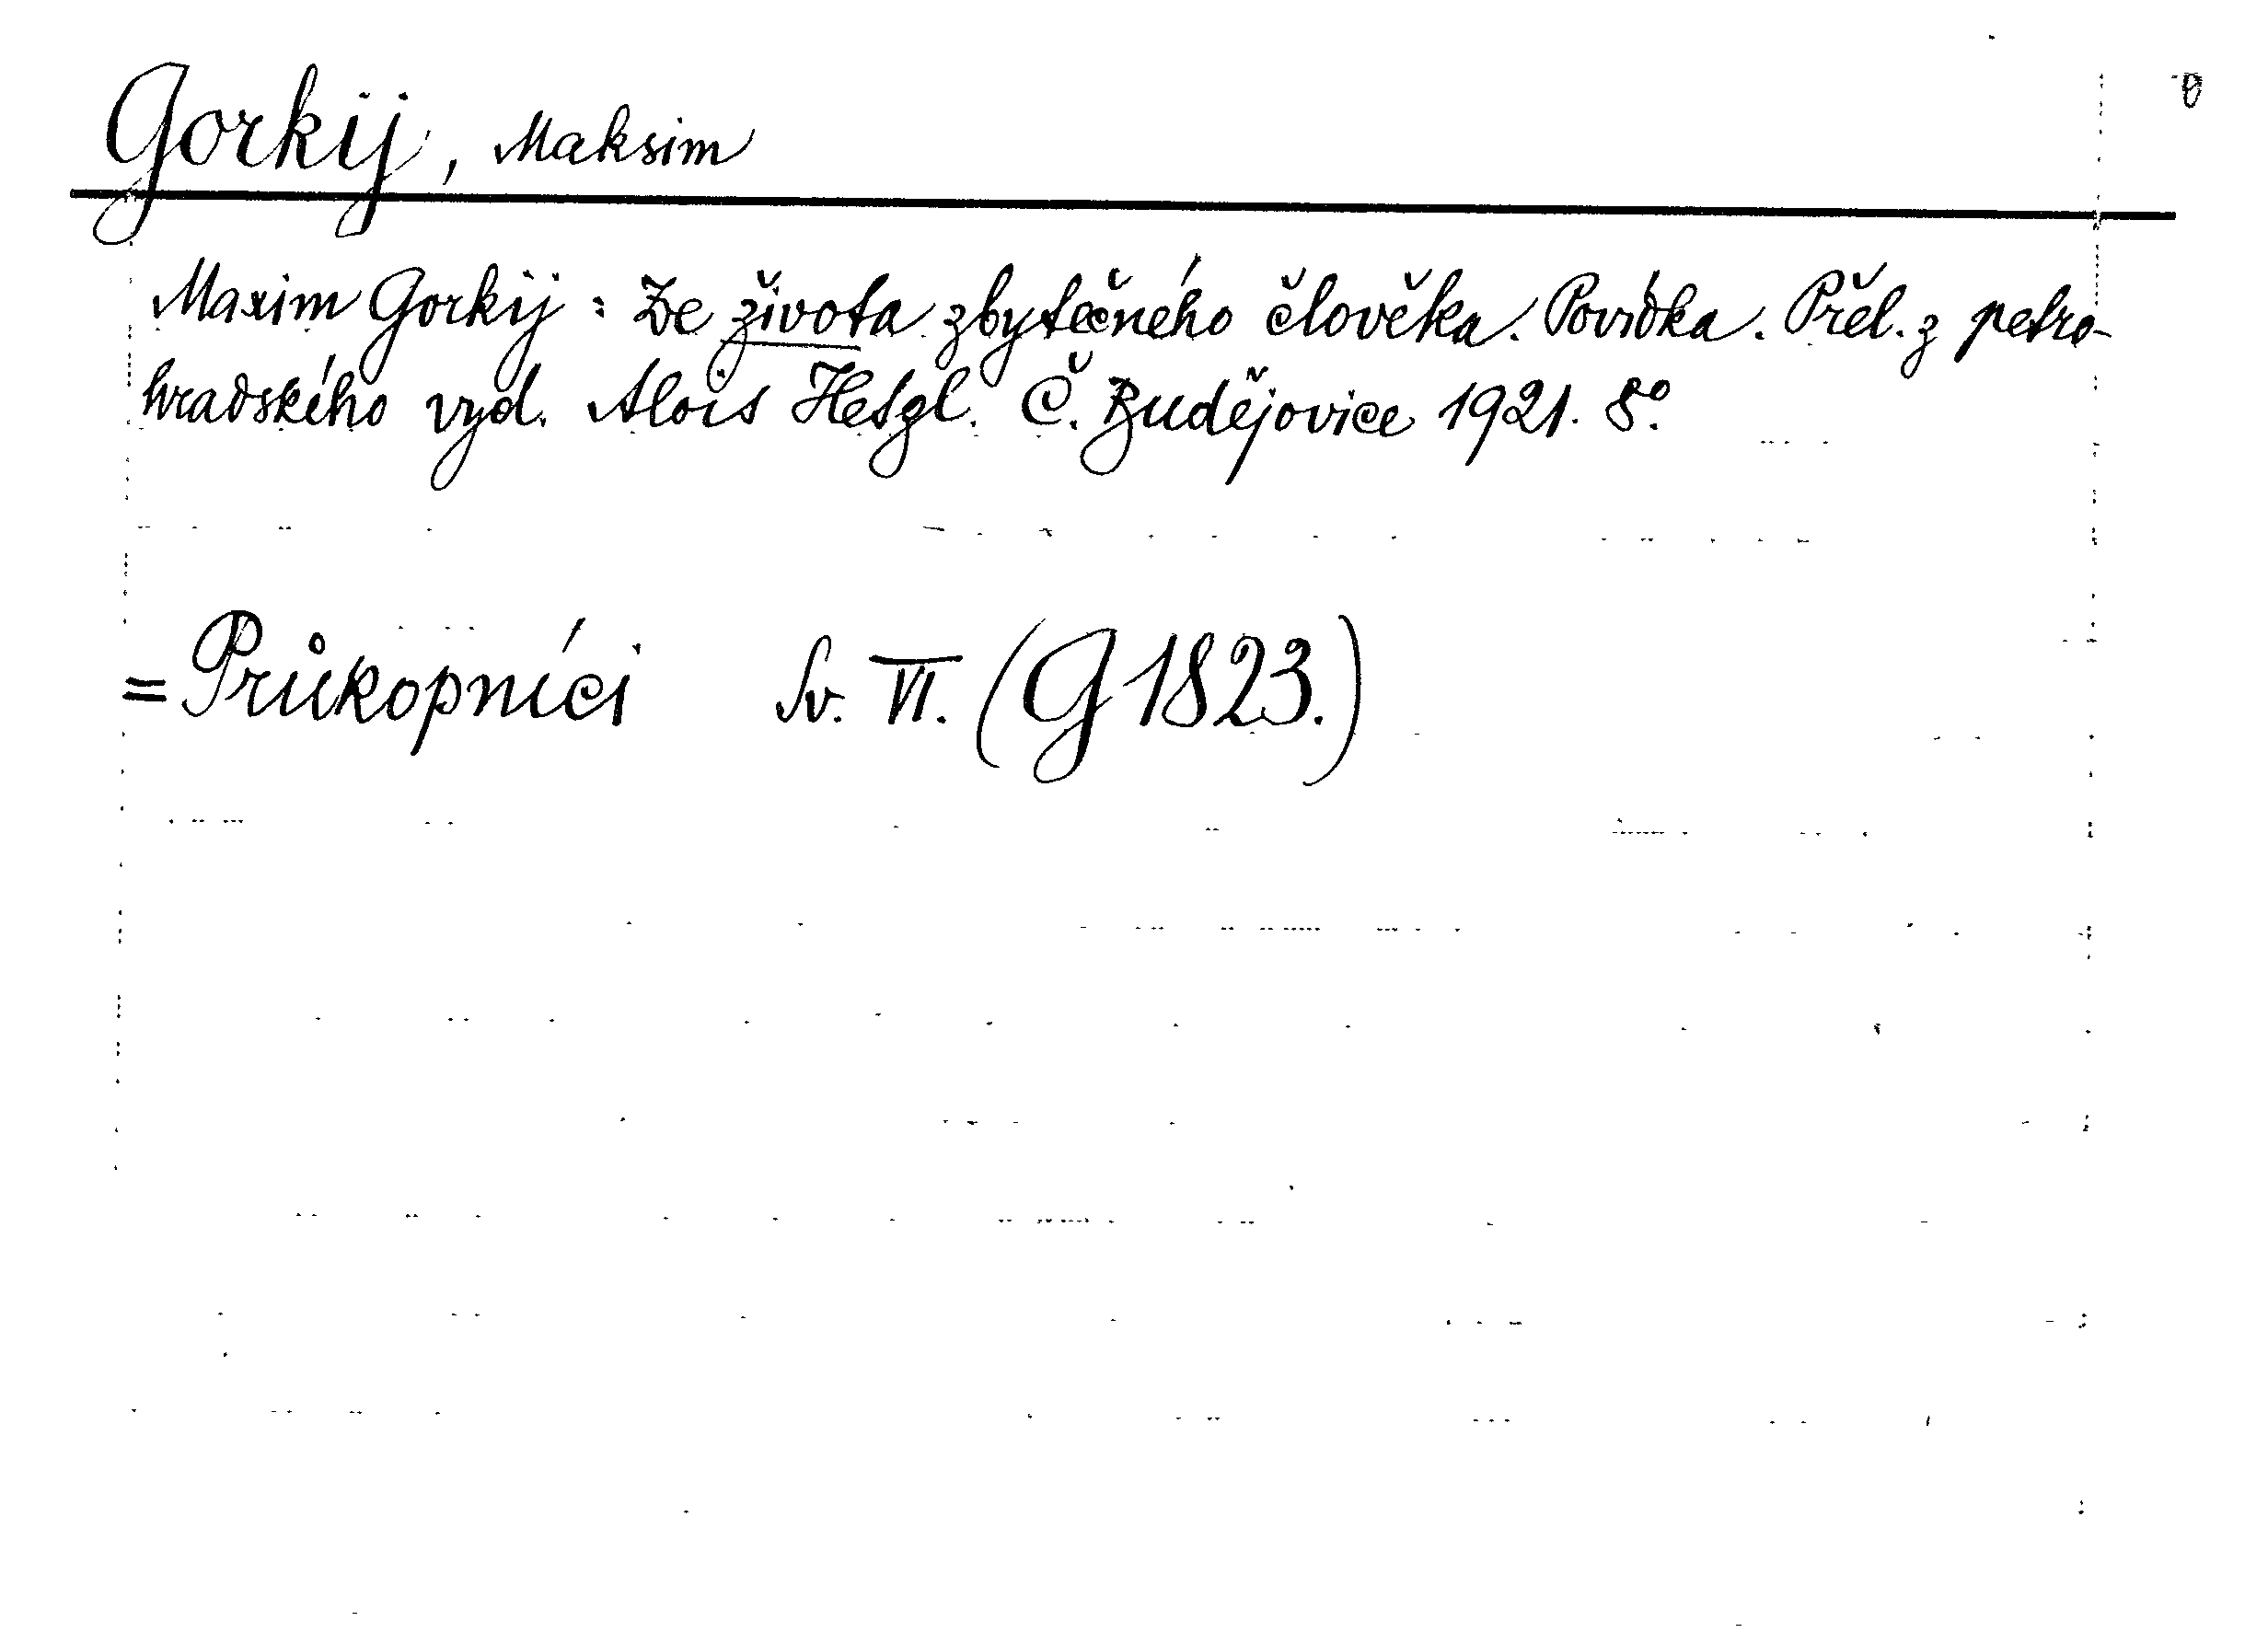 Gorkij, Maksim
Maxim Gorkij: Ze života zbytečného člověka. Povídka. Přel. z petro-
hradského vyd. Alois Hesgl. Č. Budějovice 1921. 8°.
= Průkopníci Sv. VI. (G 1823.)